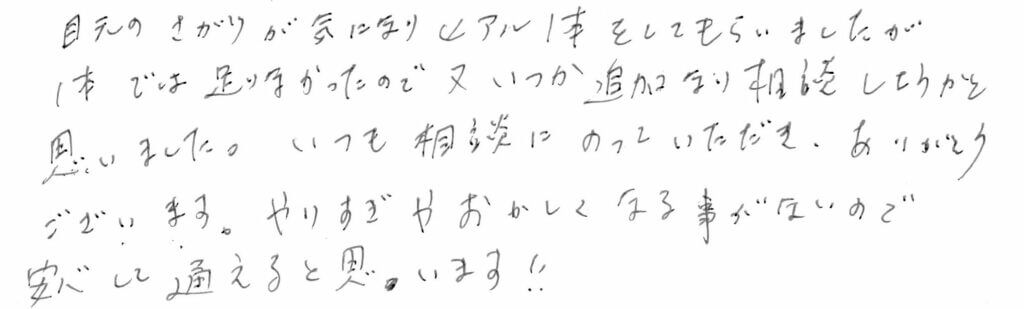 目元のさがりが気になりヒアル1本をしてもらいましたが
1本では足りなかったので又いつか追加なり相談しようかと
思いました。いつも相談にのっていただき、ありがとう
ございます。やりすぎやおかしくなる事がないので
安心して通えると思います!!